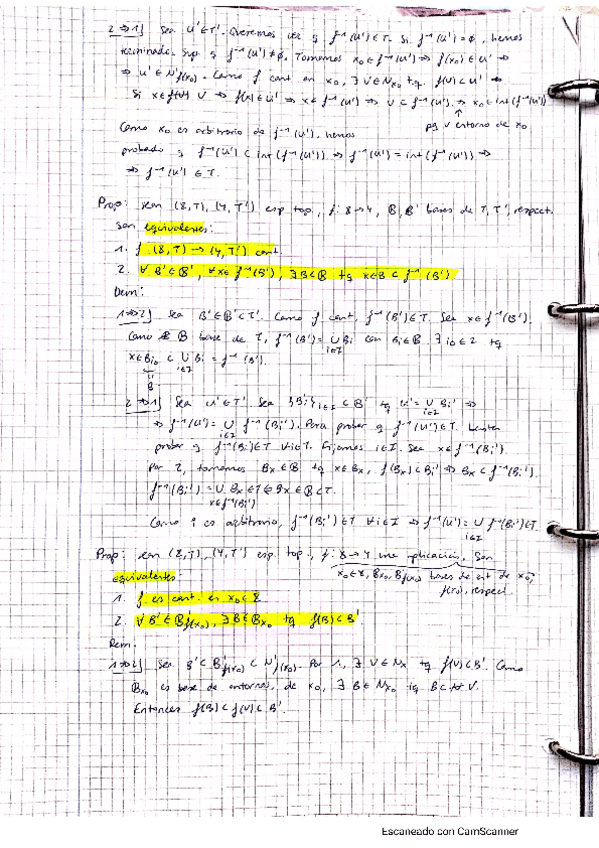 2 ⇒ 1] Sea U' ∈ T'. Queremos ver q f⁻¹(U') ∈ T. Si f⁻¹(U') = ∅, hemos
terminado. Sup q f⁻¹(U') ≠ ∅. Tomemos x₀ ∈ f⁻¹(U') ⇒ f(x₀) ∈ U' ⇒
⇒ U' ∈ N'f(x₀). Como f cont en x₀, ∃ V ∈ Nx₀ tq f(V) ⊂ U' ⇒
Si x ∈ V ⇒ f(x) ∈ U' ⇒ x ∈ f⁻¹(U') ⇒ V ⊂ f⁻¹(U') ⇒ x₀ ∈ int(f⁻¹(U'))
↑
pq V entorno de x₀
Como x₀ es arbitrario de f⁻¹(U'), hemos
probado q f⁻¹(U') ⊂ int(f⁻¹(U')) ⇒ f⁻¹(U') = int(f⁻¹(U')) ⇒
⇒ f⁻¹(U') ∈ T.
Prop: sean (X,T), (Y,T') esp top, f: X → Y, B, B' bases de T, T', respect.
Son equivalentes:
1. f (X,T) → (Y,T') cont.
2. ∀ B' ∈ B', ∀x ∈ f⁻¹(B'), ∃ B ∈ B tq x ∈ B ⊂ f⁻¹(B')
Dem:
1 ⇒ 2] Sea B' ∈ B' ⊂ T'. Como f cont, f⁻¹(B') ∈ T. Sea x ∈ f⁻¹(B').
Como B base de T, f⁻¹(B') = ∪ Bi con Bi ∈ B. ∃ i₀ ∈ I tq
i∈I
x ∈ Bi₀ ⊂ ∪ Bi = f⁻¹(B').
i∈I
B
2 ⇒ 1] Sea U' ∈ T'. Sea {Bi'}i∈I ⊂ B' tq U' = ∪ Bi' ⇒
i∈I
⇒ f⁻¹(U') = ∪ f⁻¹(Bi'). Para probar q f⁻¹(U') ∈ T. basta
i∈I
probar q f⁻¹(Bi') ∈ T ∀i∈I. Fijamos i∈I. Sea x ∈ f⁻¹(Bi')
Por 2, tomemos Bx ∈ B tq x ∈ Bx, f(Bx) ⊂ Bi' ⇒ Bx ⊂ f⁻¹(Bi').
f⁻¹(Bi') = ∪ Bx ∈ T Bx ∈ B ⊂ T.
x∈f⁻¹(Bi')
Como i es arbitrario, f⁻¹(Bi') ∈ T ∀ i∈I ⇒ f⁻¹(U') = ∪ f⁻¹(Bi') ∈ T.
i∈I
Prop: sean (X,T), (Y,T') esp. top., f: X → Y una aplicación. Son
equivalentes:
x₀ ∈ X, Bx₀, Bf(x₀) bases de ent de x₀,
f(x₀), respect
1. f es cont. en x₀ ∈ X
2. ∀ B' ∈ Bf(x₀), ∃ B ∈ Bx₀ tq f(B) ⊂ B'
Dem.
1 ⇒ 2] Sea B' ⊂ B'f(x₀) ⊂ N'f(x₀). Por 1, ∃ V ∈ Nx tq f(V) ⊂ B'. Como
Bx₀ es base de entornos, de x₀, ∃ B ∈ Nx₀ tq B ⊂ V.
Entonces f(B) ⊂ f(V) ⊂ B'.
Escaneado con CamScanner